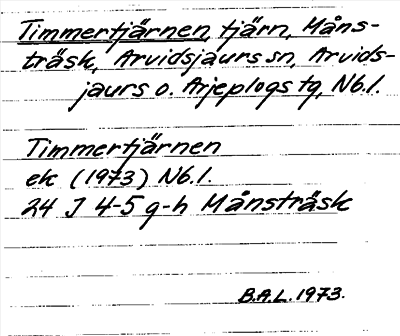 Timmertjärnen, tjärn, Måns-
träsk, Arvidsjaurs sn, Arvids-
jaurs o. Arjeplogs tg, Nb.l.
Timmertjärnen
ek (1973) Nb.l.
24 J 4-5 g-h Månsträsk
B.A.L. 1973.